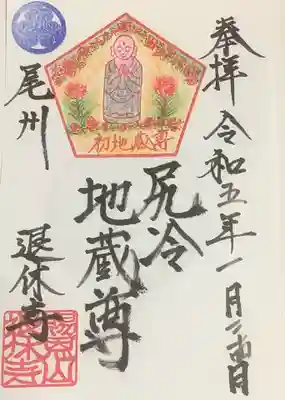 奉拝 令和五年一月
初地蔵尊
尻冷
地蔵尊
尾州 退休寺